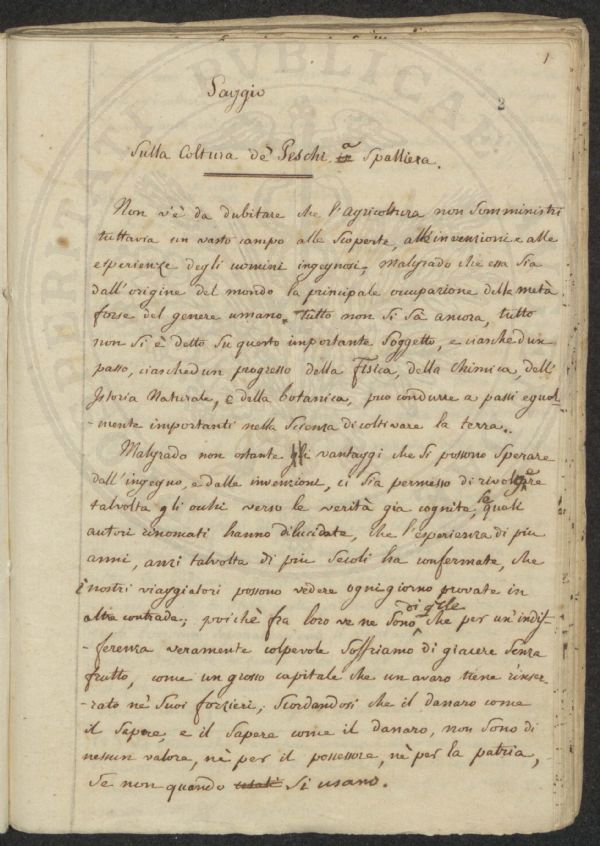 1
2
Saggio
Sulla Coltura de' Peschi a Spalliera.
Non v'è da dubitare che l'agricoltura non somministri
tuttavia un vasto campo alle scoperte, alle invenzioni e alle
esperienze degli uomini ingegnosi. Malgrado che essa sia
dall'origine del mondo la principale occupazione della metà
forse del genere umano. Tutto non si sà ancora, tutto
non si è detto su questo importante soggetto, e ciasched'un
passo, ciasched'un progresso della Fisica, della Chimica, dell'
Istoria Naturale, e della botanica, puo condurre a passi egual-
-mente importanti nella Scienza di coltivare la terra.
Malgrado non ostante gli vantaggi che si possono sperare
dall'ingegno, e dalle invenzioni, ci sia permesso di
talvolta gli occhi verso le verità gia cognite, le quali
autori rinomati hanno dilucidate, che l'esperienza di piu
anni, anzi talvolta di piu secoli ha confermate, che
i nostri viaggiatori possono vedere ogni giorno provate in
altre contrade; poichè fra loro ve ne sono di q.lle che per un'indif-
-ferenza veramente colpevole soffriamo di giacere senza
frutto, come un grosso capitale che un avaro tiene rinser-
-rato ne' suoi forzieri; scordandosi che il danaro come
il sapere, e il sapere come il danaro, non sono di
nessun valore, nè per il possessore, nè per la patria,
se non quando si usano.